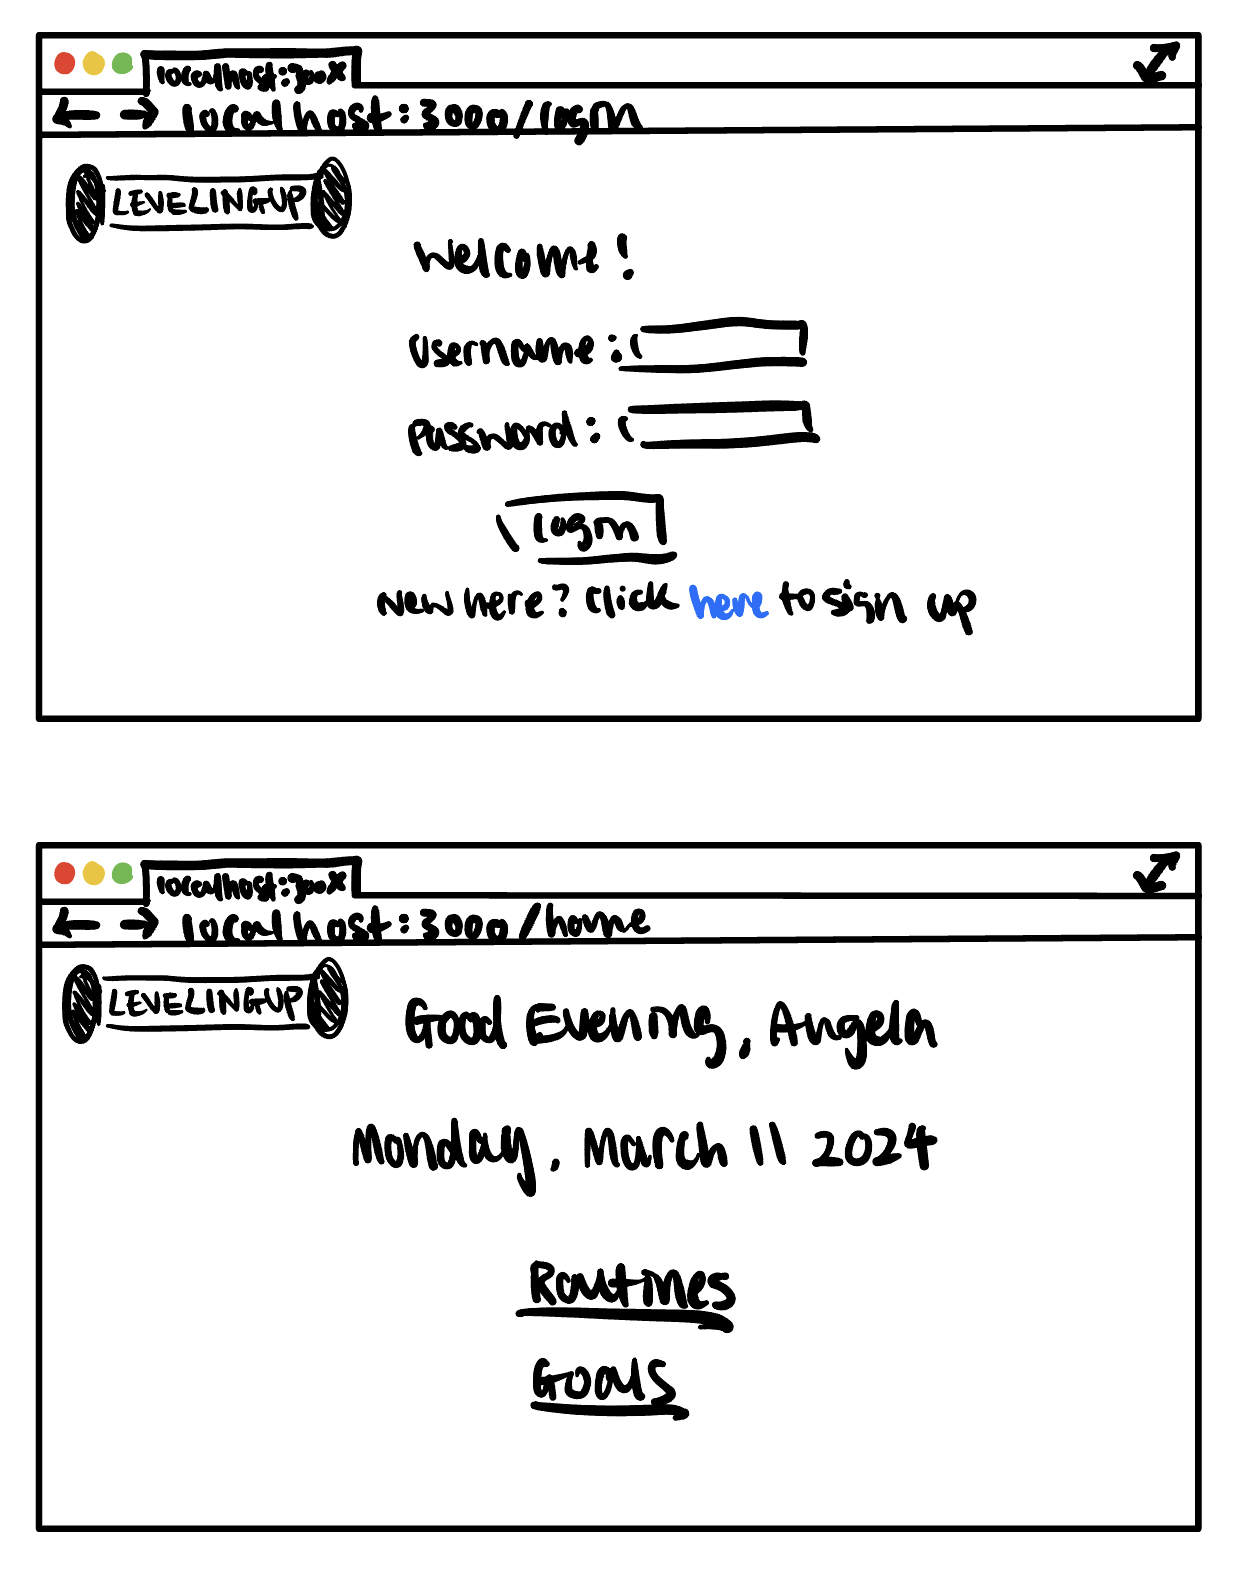 localhost:300 X
localhost:3000/login
LEVELINGUP
Welcome!
Username:
Password:
login
New here? Click here to sign up
localhost:300 X
localhost:3000/home
LEVELINGUP
Good Evening, Angela
Monday, March 11 2024
Routines
Goals